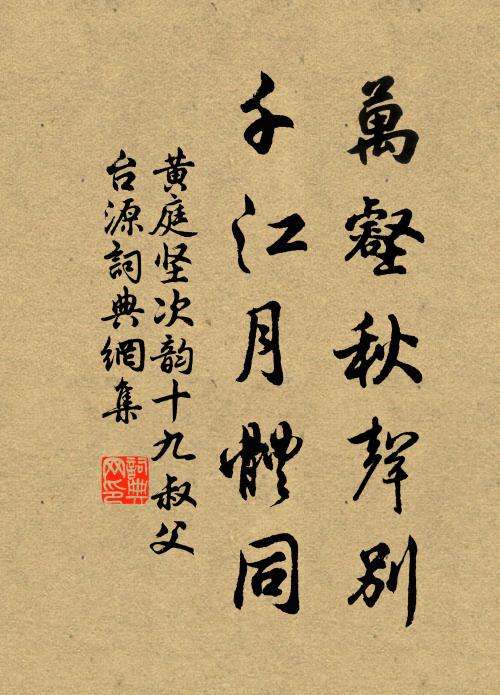 萬壑秋聲別
千江月體同
黄庭坚次韵十九叔父
台源詞典網集
詞典
网印